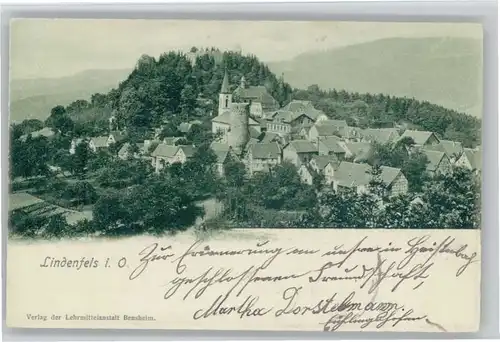 Lindenfels i. O.
Zur Erinnerung an unsere in
geschlossene Freundschaft,
Martha Dorstelmann,
Verlag der Lehrmittelanstalt Bensheim.